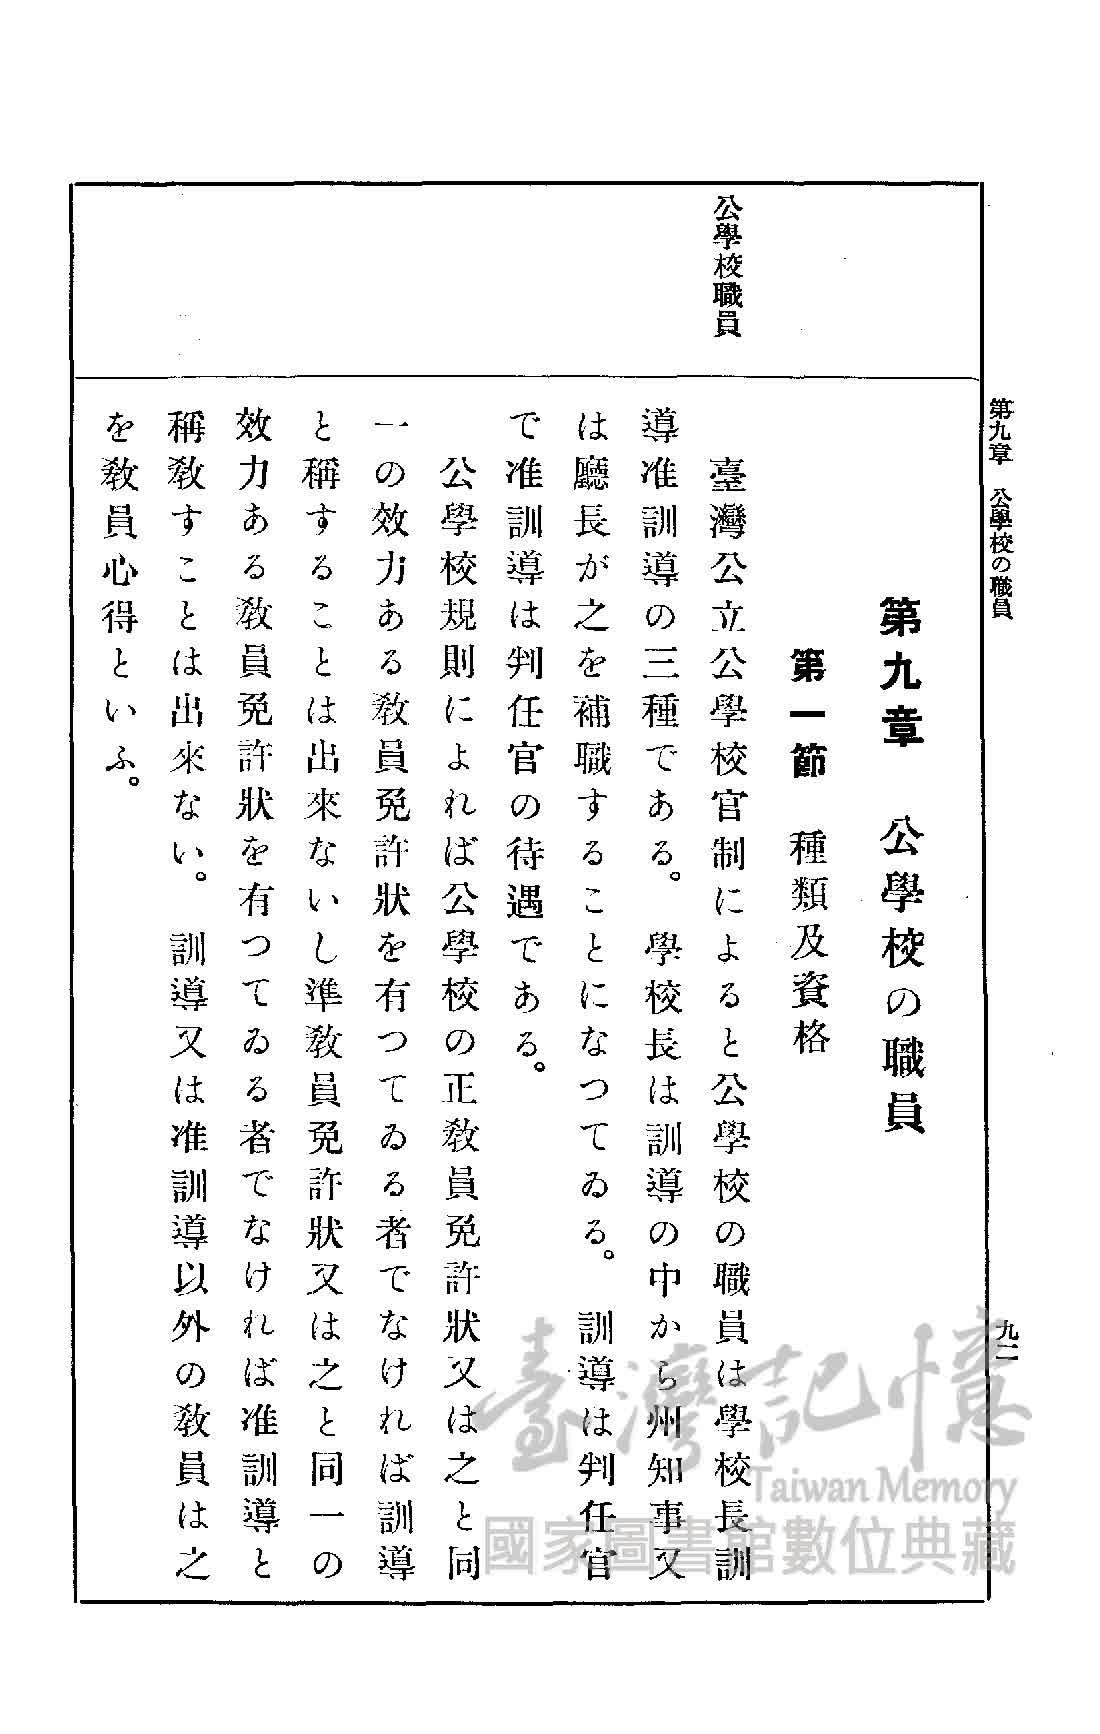 第九章　公學校の職員
九一
公學校職員
第九章　公學校の職員
第一節　種類及資格
臺灣公立公學校官制によると公學校の職員は學校長訓
導准訓導の三種である。學校長は訓導の中から州知事又
は廳長が之を補職することになつてゐる。訓導は判任官
で准訓導は判任官の待遇である。
公學校規則によれば公學校の正敎員免許狀又は之と同
一の效力ある敎員免許狀を有つてゐる者でなければ訓導
と稱することは出來ないし準敎員免許狀又は之と同一の
效力ある敎員免許狀を有つてゐる者でなければ准訓導と
稱敎すことは出來ない。訓導又は准訓導以外の敎員は之
を敎員心得といふ。
臺灣記憶
Taiwan Memory
國家圖書館數位典藏